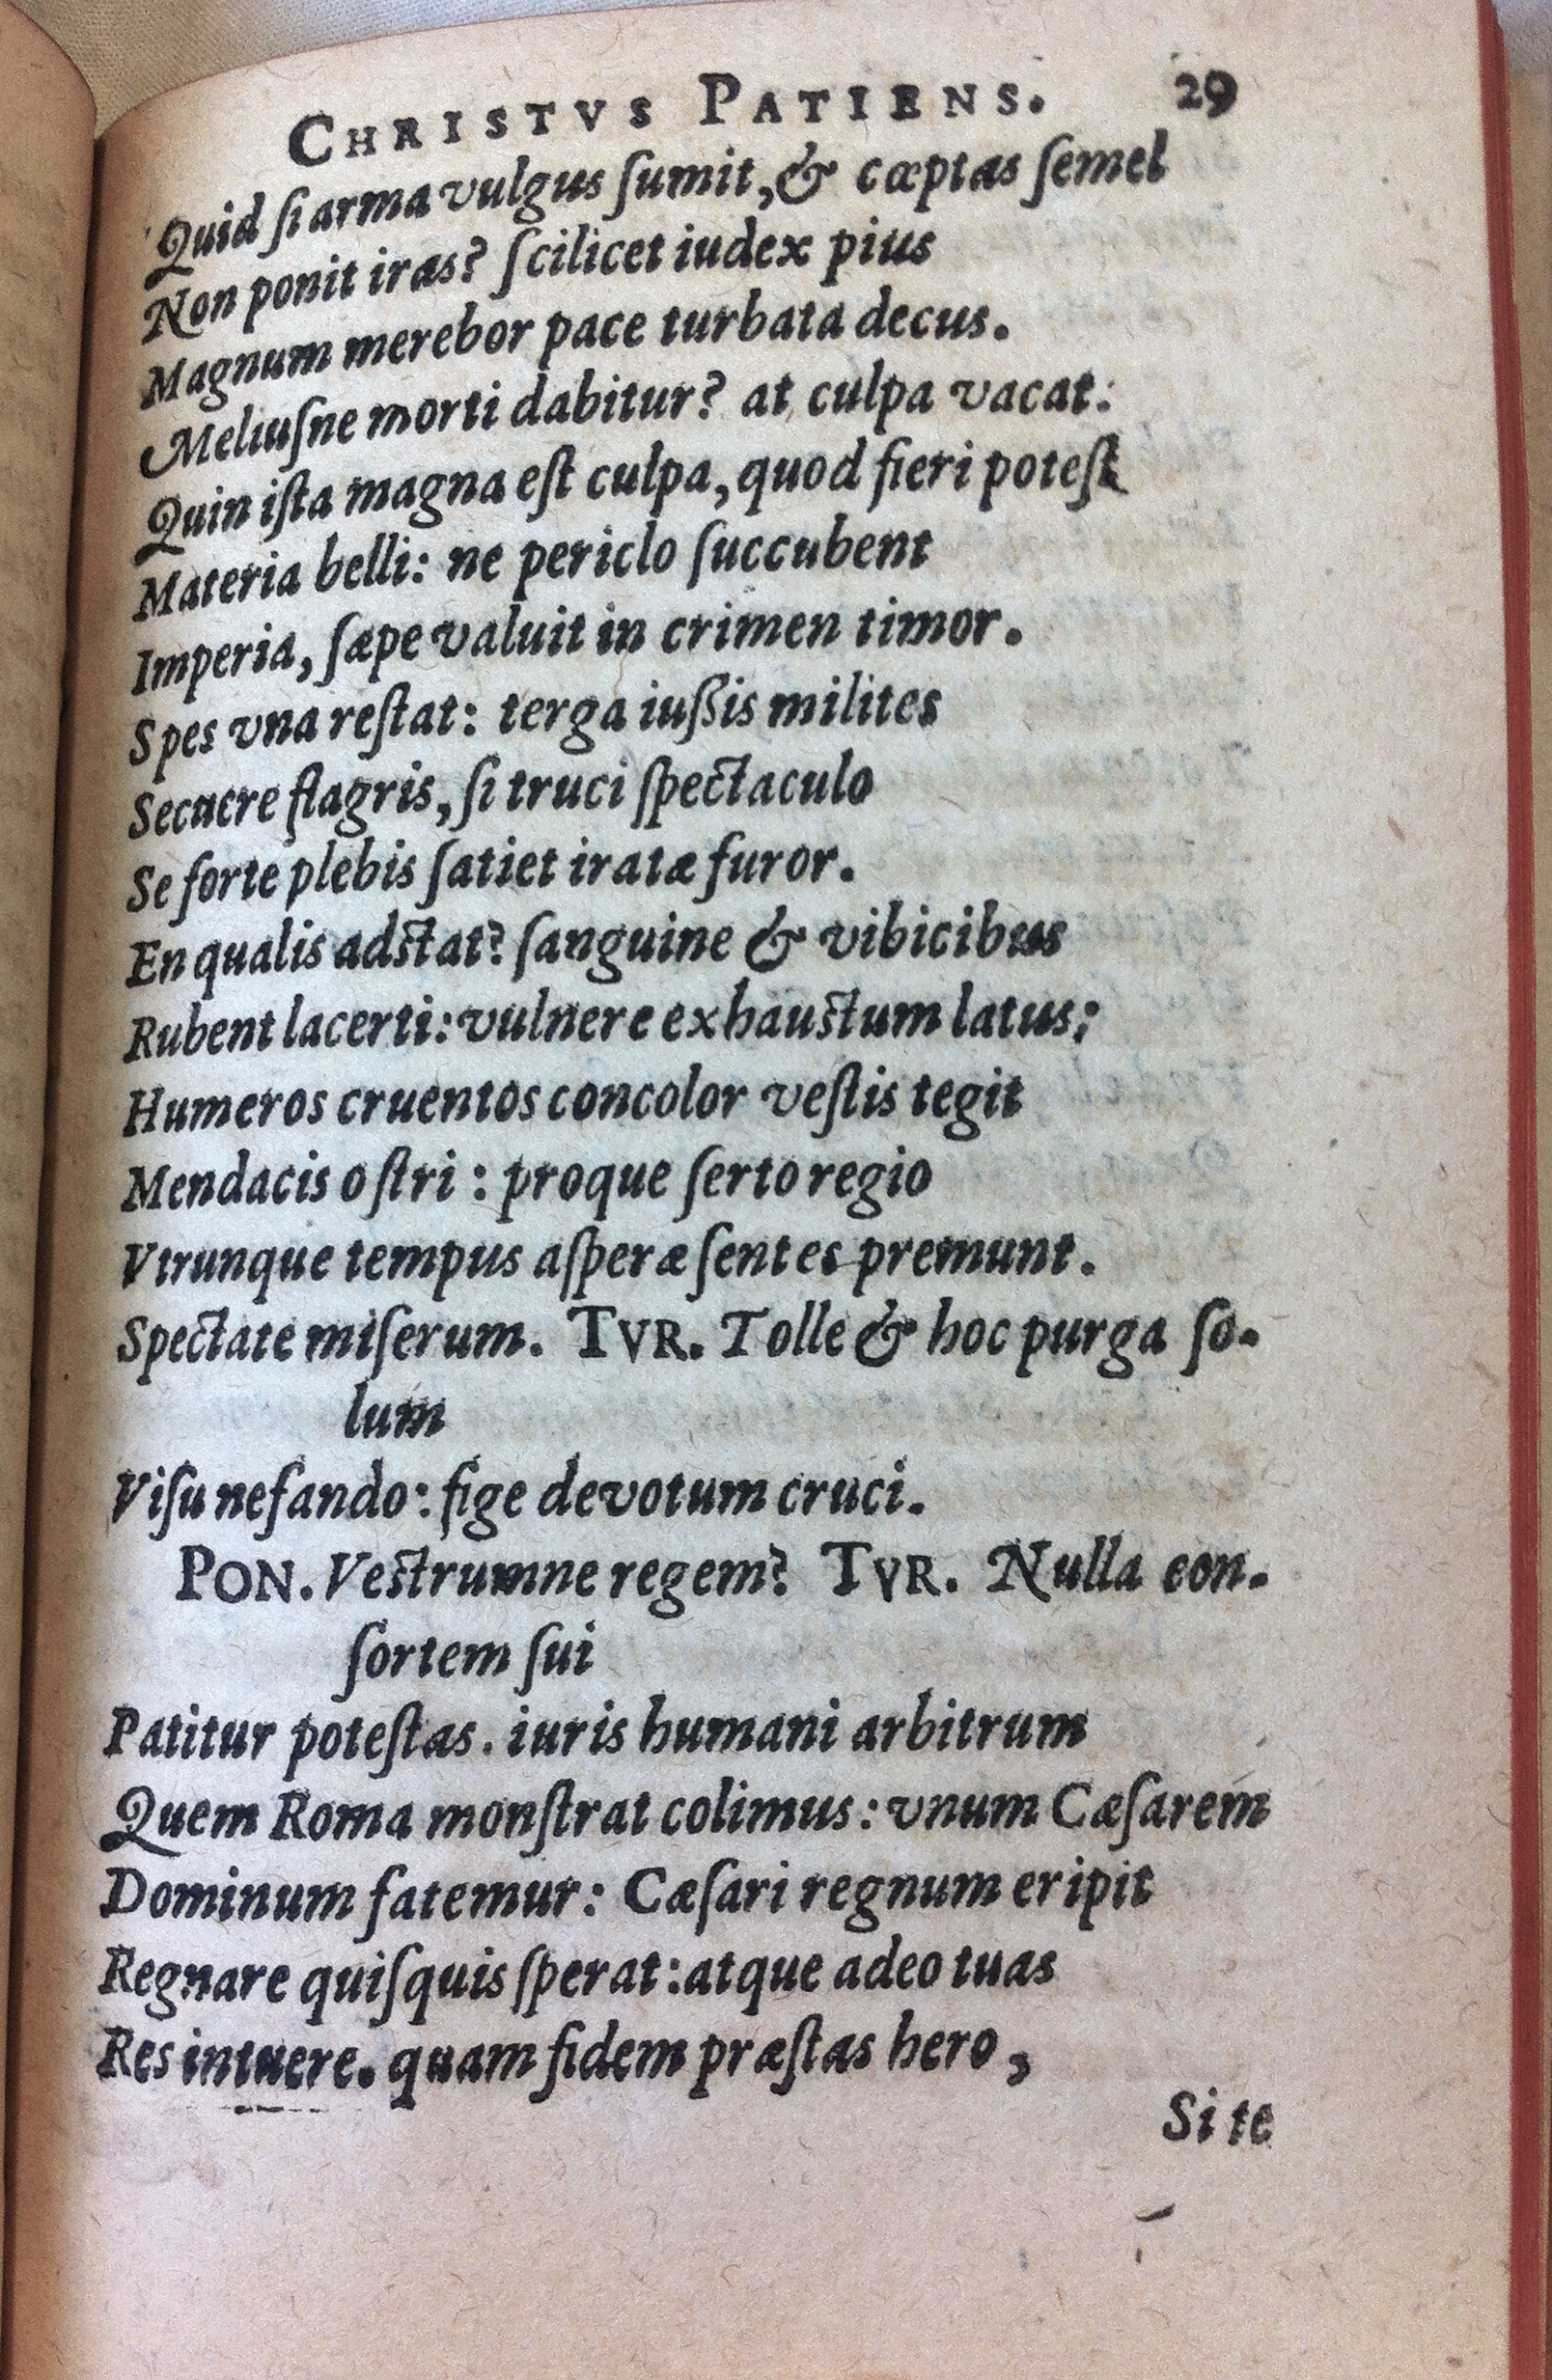 CHRISTVS PATIENS. 29
Quid ſi arma vulgus ſumit, & cœptas ſemel
Non ponit iras? ſcilicet iudex pius
Magnum merebor pace turbata decus.
Meliuſne morti dabitur? at culpa vacat:
Quin iſta magna eſt culpa, quod fieri poteſt
Materia belli: ne periclo ſuccubent
Imperia, ſæpe valuit in crimen timor.
Spes vna reſtat: terga iuſsis milites
Secuere flagris, ſi truci ſpectaculo
Se forte plebis ſatiet iratæ furor.
En qualis adſtat? ſanguine & vibicibus
Rubent lacerti: vulnere exhauſtum latus;
Humeros cruentos concolor veſtis tegit
Mendacis oſtri: proque ſerto regio
Vtrunque tempus aſperæ ſentes premunt.
Spectate miſerum. TVR. Tolle & hoc purga ſo-
lum
Viſu nefando: fige devotum cruci.
PON. Veſtrumne regem? TVR. Nulla con-
ſortem ſui
Patitur poteſtas. iuris humani arbitrum
Quem Roma monſtrat colimus: vnum Cæſarem
Dominum fatemur: Cæſari regnum eripit
Regnare quiſquis ſperat: atque adeo tuas
Res intuere. quam fidem præſtas hero,
Si te